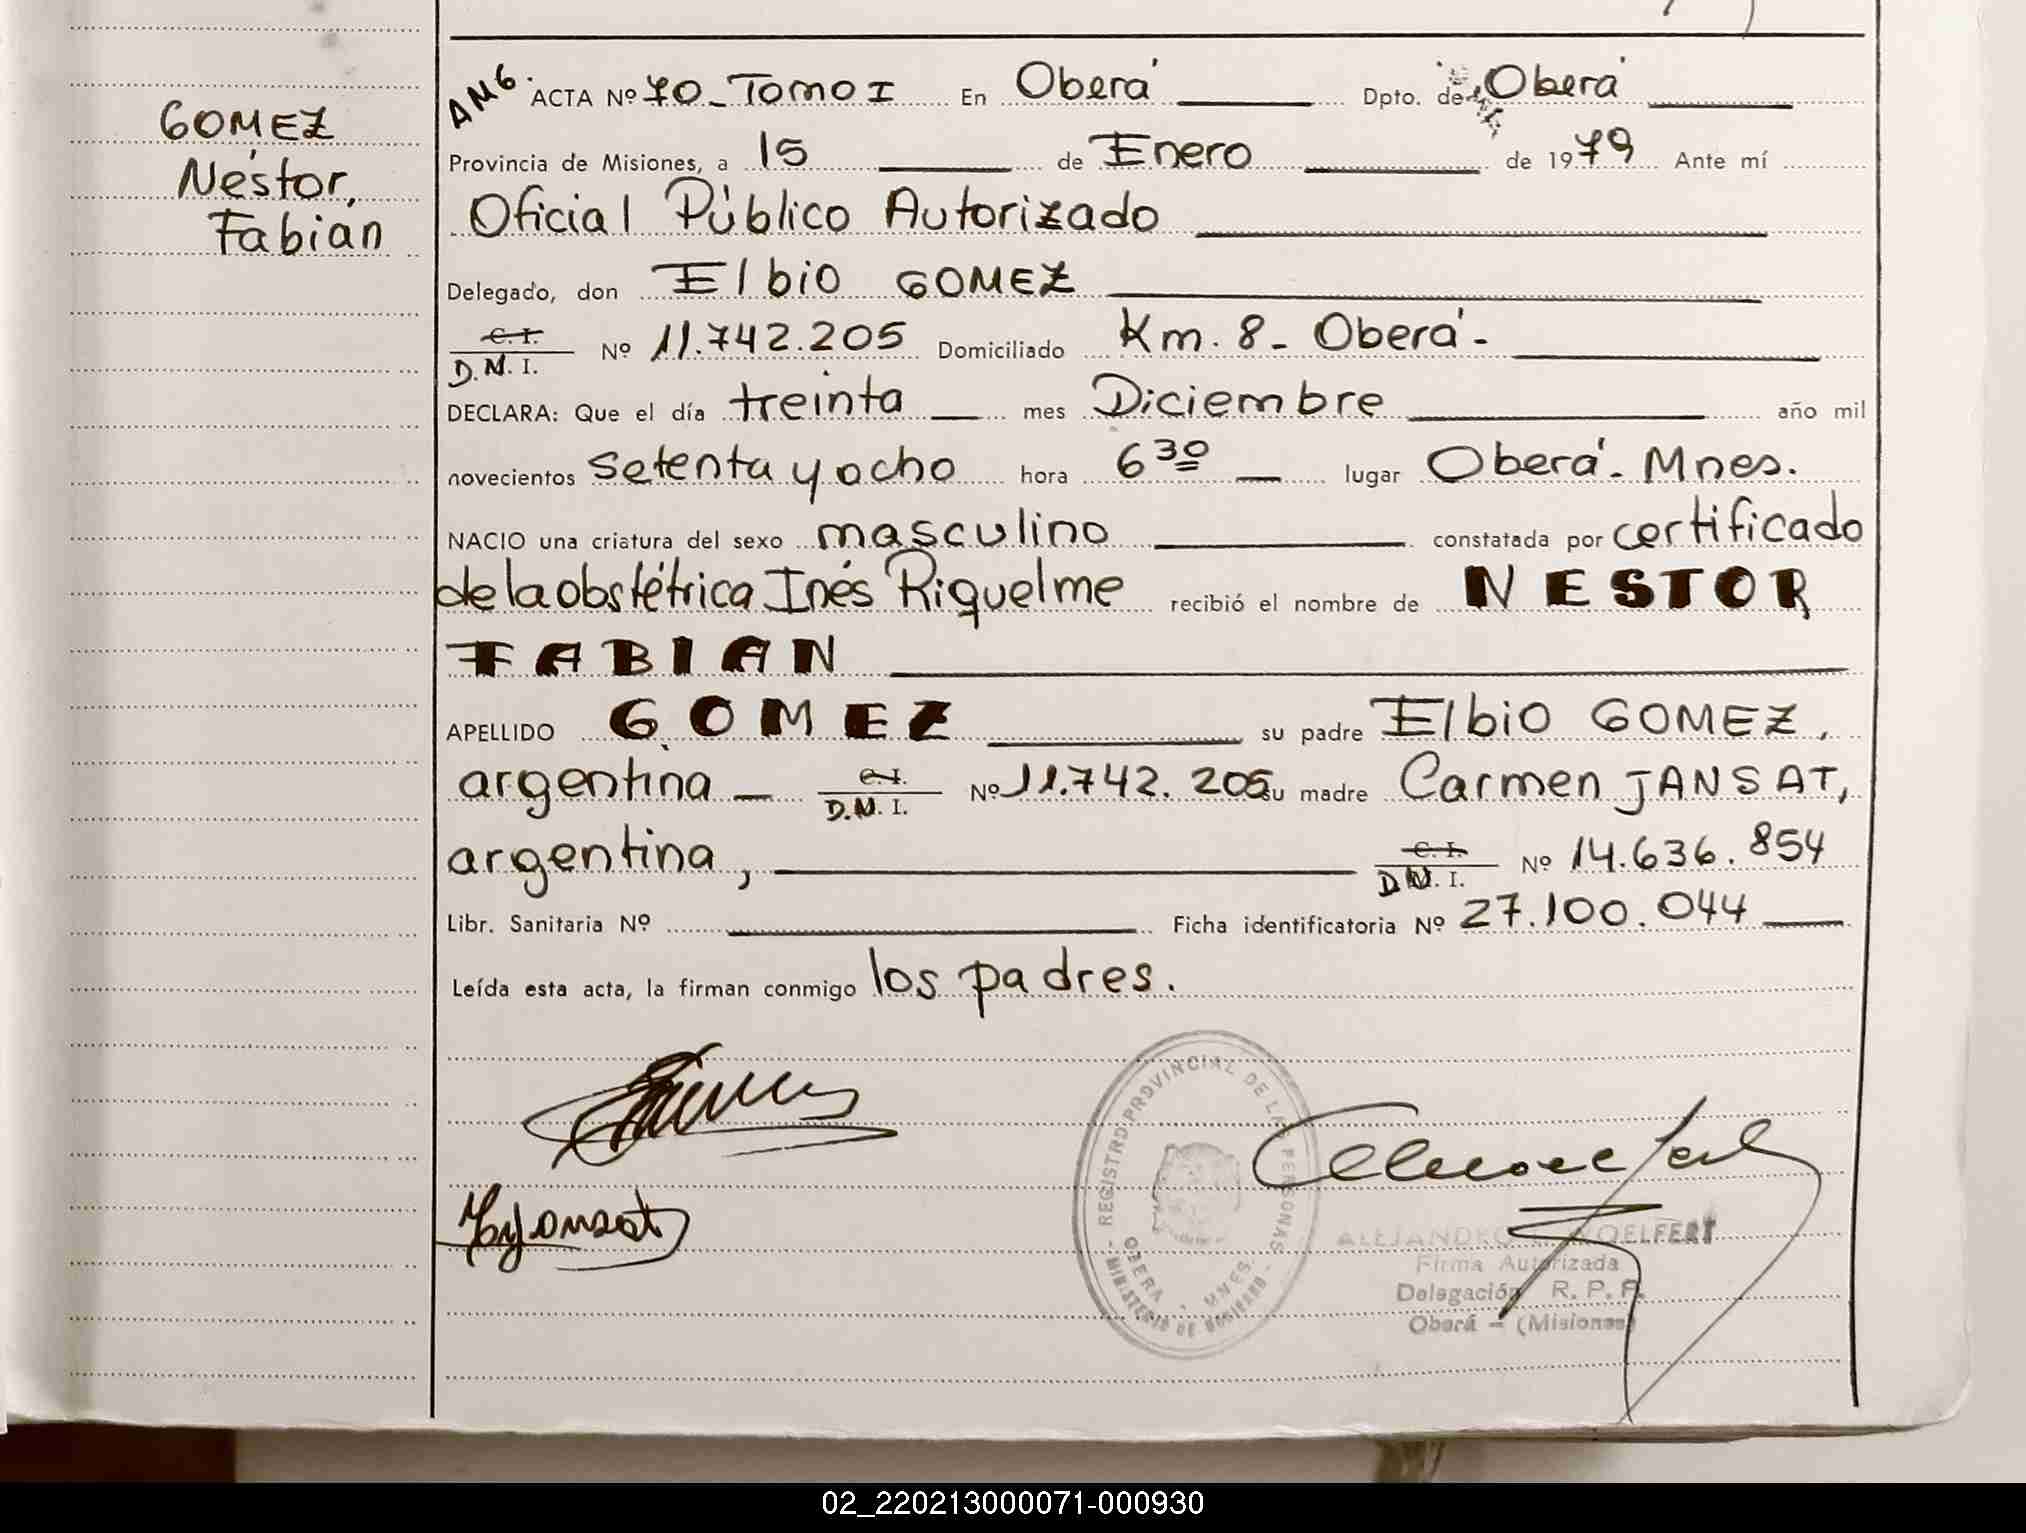 GOMEZ
Néstor,
Fabián
AMG.
ACTA Nº 70 - Tomo I En Oberá Dpto. de Oberá
Provincia de Misiones, a 15 de Enero de 1979 Ante mí
Oficial Público Autorizado
Delegado, don Elbio GOMEZ
C. I.
D. N. I. Nº 11.742.205 Domiciliado Km. 8 - Oberá -
DECLARA: Que el día treinta mes Diciembre año mil
novecientos setenta y ocho hora 6 30 lugar Oberá - Mnes.
NACIO una criatura del sexo masculino constatada por certificado
de la obstétrica Inés Riquelme recibió el nombre de NESTOR
FABIAN
APELLIDO GOMEZ su padre Elbio GOMEZ,
argentina - C. I. D. N. I. Nº 11.742.205 su madre Carmen JANSAT,
argentina, C. I. D. N. I. Nº 14.636.854
Libr. Sanitaria Nº Ficha identificatoria Nº 27.100.044
Leída esta acta, la firman conmigo los padres.
REGISTRO PROVINCIAL DE LAS PERSONAS
OBERA - MNES.
MINISTERIO DE GOBIERNO
ALEJANDRO
Firma Autorizada
Delegación R. P. P.
Oberá - (Misiones)
02_220213000071-000930